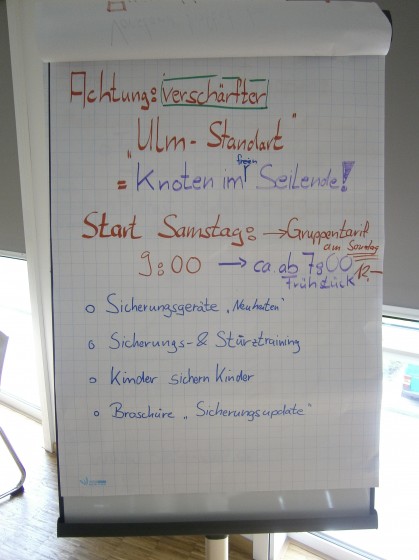 Achtung: verschärfter
"Ulm-Standart"
= Knoten im freien Seilende!
Start Samstag: → Gruppentarif
am Sonntag
9:00 → ca. ab 7:00 12,-
Frühstück
o Sicherungsgeräte „Neuheiten"
o Sicherungs- & Sturztraining
o Kinder sichern Kinder
o Broschüre „Sicherungsupdate"